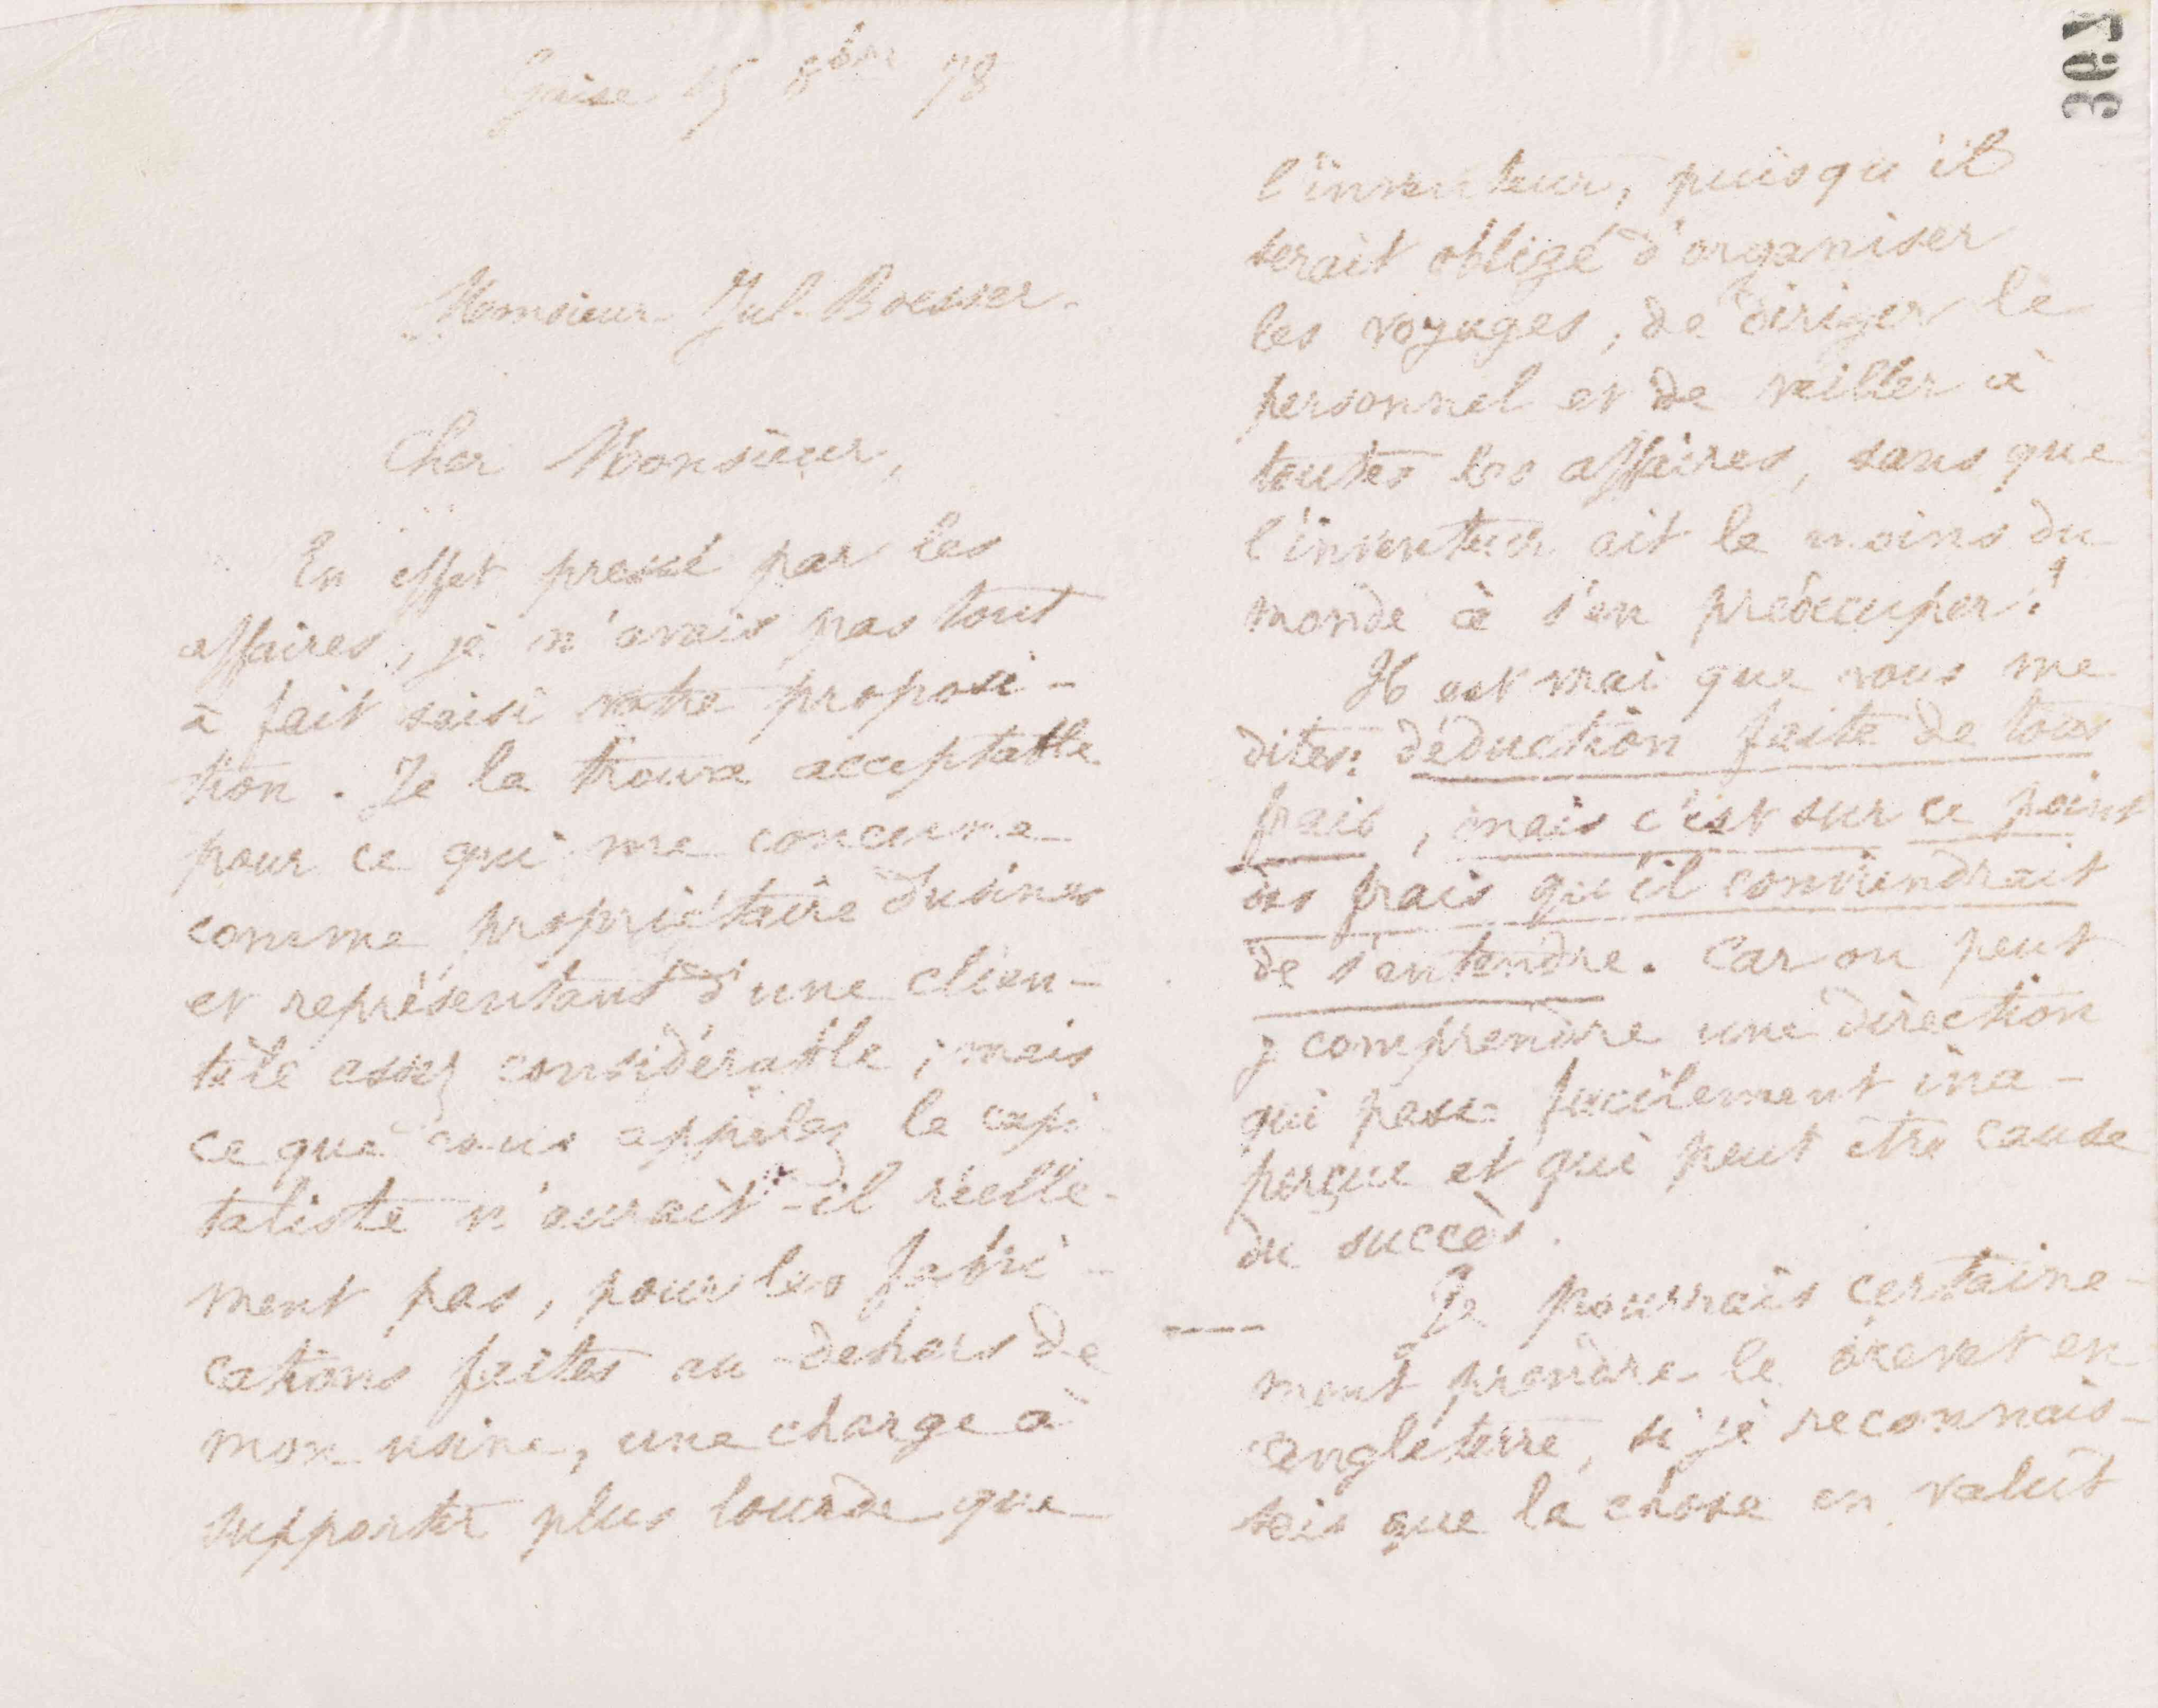 Guise 15 8bre 78
Monsieur Jul. Boesser.
Cher Monsieur,
En effet pressé par les
affaires, je n'avais pas tout
à fait saisi votre proposi-
tion. Je la trouve acceptable
pour ce qui me concerne
comme propriétaire d'usines
et représentant d'une clien-
tèle assez considérable ; mais
ce que vous appelez le capi
taliste n'aurait-il réelle-
ment pas, pour les fabri-
cations faites au dehors de
mon usine, une charge à
supporter plus lourde que
367
l'inventeur, puisqu'il
serait obligé d'organiser
les voyages, de diriger le
personnel et de veiller à
toutes les affaires, sans que
l'inventeur ait le moins du
monde à s'en préoccuper ?
Il est vrai que vous me
dites: déduction faite de tous
frais, mais c'est sur ce point
des frais qu'il conviendrait
de s'entendre. Car on peut
y comprendre une direction
qui passe facilement ina-
perçue et qui peut être cause
du succès.
Je pourrais certaine-
ment prendre le brevet en
angleterre, si je reconnais-
sais que la chose en valut